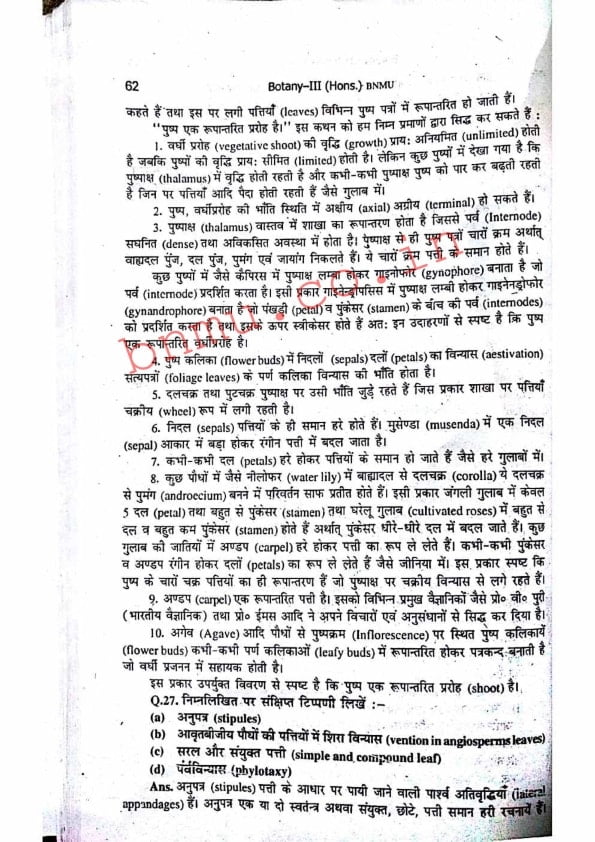 62
Botany–III (Hons.) BNMU
कहते हैं तथा इस पर लगी पत्तियाँ (leaves) विभिन्न पुष्प पत्रों में रूपान्तरित हो जाती हैं।
"पुष्प एक रूपान्तरित प्ररोह है।" इस कथन को हम निम्न प्रमाणों द्वारा सिद्ध कर सकते हैं :
1. वर्धी प्ररोह (vegetative shoot) की वृद्धि (growth) प्रायः अनियमित (unlimited) होती
है जबकि पुष्पों की वृद्धि प्रायः सीमित (limited) होती है। लेकिन कुछ पुष्पों में देखा गया है कि
पुष्पाक्ष (thalamus) में वृद्धि होती रहती है और कभी-कभी पुष्पाक्ष पुष्प को पार कर बढ़ती रहती
है जिन पर पत्तियाँ आदि पैदा होती रहती हैं जैसे गुलाब में।
2. पुष्प, वर्धीप्ररोह की भाँति स्थिति में अक्षीय (axial) अग्रीय (terminal) हो सकते हैं।
3. पुष्पाक्ष (thalamus) वास्तव में शाखा का रूपान्तरण होता है जिससे पर्व (Internode)
सघनित (dense) तथा अविकसित अवस्था में होता है। पुष्पाक्ष से ही पुष्प पत्रों चारों क्रम अर्थात्
वाह्यदल पुंज, दल पुंज, पुमंग एवं जायांग निकलते हैं। ये चारों क्रम पत्ती के समान होते हैं।
कुछ पुष्पों में जैसे कैपरिस में पुष्पाक्ष लम्बा होकर गाइनोफोर (gynophore) बनाता है जो
पर्व (internode) प्रदर्शित करता है। इसी प्रकार गाइनेन्ड्रोपसिस में पुष्पाक्ष लम्बी होकर गाइनेनड्रोफोर
(gynandrophore) बनाता है जो पंखड़ी (petal) व पुंकेसर (stamen) के बीच की पर्व (internodes)
को प्रदर्शित करता है तथा इसके ऊपर स्त्रीकेसर होते हैं अतः इन उदाहरणों से स्पष्ट है कि पुष्प
एक रूपान्तरित वर्धीप्ररोह है।
4. पुष्प कलिका (flower buds) में निदलों (sepals) दलों (petals) का विन्यास (aestivation)
सत्यपत्रों (foliage leaves) के पर्ण कलिका विन्यास की भाँति होता है।
5. दलचक्र तथा पुटचक्र पुष्पाक्ष पर उसी भाँति जुड़े रहते हैं जिस प्रकार शाखा पर पत्तियाँ
चक्रीय (wheel) रूप में लगी रहती है।
6. निदल (sepals) पत्तियों के ही समान हरे होते हैं। मुसेण्डा (musenda) में एक निदल
(sepal) आकार में बड़ा होकर रंगीन पत्ती में बदल जाता है।
7. कभी-कभी दल (petals) हरे होकर पत्तियों के समान हो जाते हैं जैसे हरे गुलाबों में।
8. कुछ पौधों में जैसे नीलोफर (water lily) में बाह्यदल से दलचक्र (corolla) ये दलचक्र
से पुमंग (androecium) बनने में परिवर्तन साफ प्रतीत होते हैं। इसी प्रकार जंगली गुलाब में केवल
5 दल (petal) तथा बहुत से पुंकेसर (stamen) तथा घरेलू गुलाब (cultivated roses) में बहुत से
दल व बहुत कम पुंकेसर (stamen) होते हैं अर्थात् पुंकेसर धीरे-धीरे दल में बदल जाते हैं। कुछ
गुलाब की जातियों में अण्डप (carpel) हरे होकर पत्ती का रूप ले लेते हैं। कभी-कभी पुंकेसर
व अण्डप रंगीन होकर दलों (petals) का रूप ले लेते हैं जैसे जीनिया में। इस प्रकार स्पष्ट कि
पुष्प के चारों चक्र पत्तियों का ही रूपान्तरण हैं जो पुष्पाक्ष पर चक्रीय विन्यास से लगे रहते हैं।
9. अण्डप (carpel) एक रूपान्तरित पत्ती है। इसको विभिन्न प्रमुख वैज्ञानिकों जैसे प्रो० वी० पुरी
(भारतीय वैज्ञानिक) तथा प्रो० ईमस आदि ने अपने विचारों एवं अनुसंधानों से सिद्ध कर दिया है।
10. अगेव (Agave) आदि पौधों से पुष्पक्रम (Inflorescence) पर स्थित पुष्प कलिकायें
(flower buds) कभी-कभी पर्ण कलिकाओं (leafy buds) में रूपान्तरित होकर पत्रकन्द बनाती है
जो वर्धी प्रजनन में सहायक होती है।
इस प्रकार उपर्युक्त विवरण से स्पष्ट है कि पुष्प एक रूपान्तरित प्ररोह (shoot) है।
Q.27. निम्नलिखित पर संक्षिप्त टिप्पणी लिखें :–
(a) अनुपत्र (stipules)
(b) आवृतबीजीय पौधों की पत्तियों में शिरा विन्यास (vention in angiosperms leaves)
(c) सरल और संयुक्त पत्ती (simple and compound leaf)
(d) पर्वविन्यास (phylotaxy)
Ans. अनुपत्र (stipules) पत्ती के आधार पर पायी जाने वाली पार्श्व अतिवृद्धियाँ (lateral
appandages) हैं। अनुपत्र एक या दो स्वतंत्र अथवा संयुक्त, छोटे, पत्ती समान हरी रचनायें हैं।
bnmu.co.in